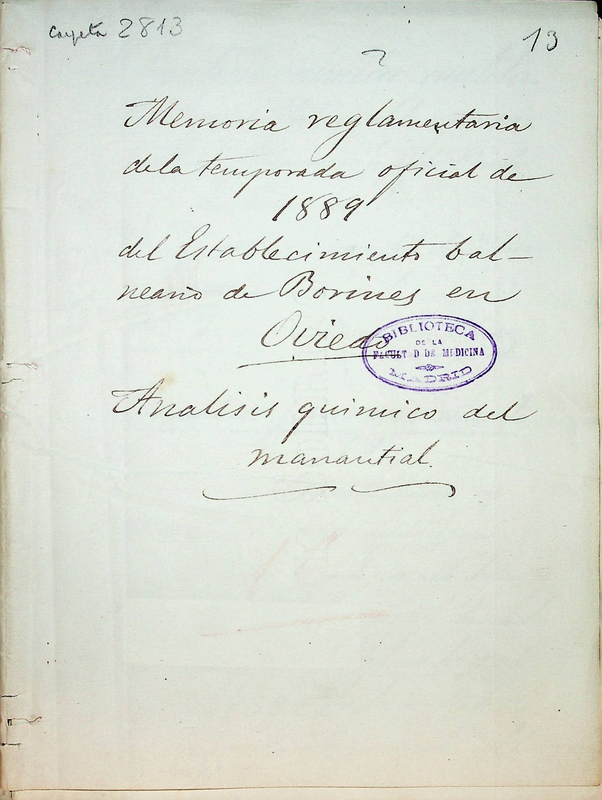 Carpeta 2813
13
Memoria reglamentaria
de la temporada oficial de
1889
del Establecimiento bal-
neario de Borines en
Oviedo
BIBLIOTECA
DE LA
FACULTAD DE MEDICINA
MADRID
Analisis quimico del
manantial.